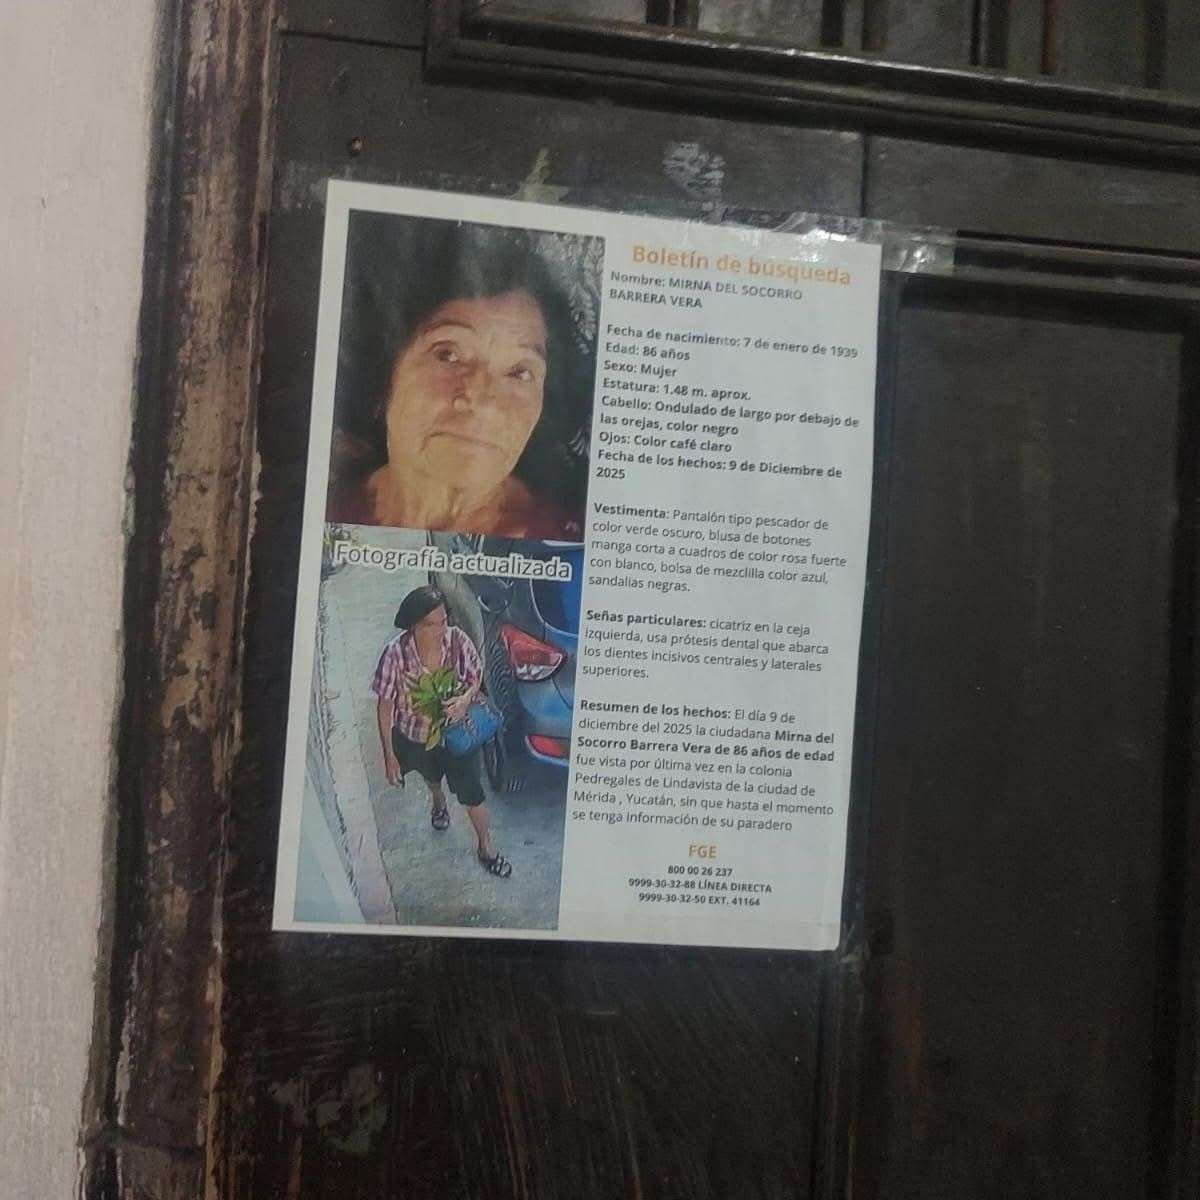 Boletín de búsqueda
Nombre: MIRNA DEL SOCORRO
BARRERA VERA
Fecha de nacimiento: 7 de enero de 1939
Edad: 86 años
Sexo: Mujer
Estatura: 1.48 m. aprox.
Cabello: Ondulado de largo por debajo de
las orejas, color negro
Ojos: Color café claro
Fecha de los hechos: 9 de Diciembre de
2025
Vestimenta: Pantalón tipo pescador de
color verde oscuro, blusa de botones
manga corta a cuadros de color rosa fuerte
con blanco, bolsa de mezclilla color azul,
sandalias negras.
Señas particulares: cicatriz en la ceja
izquierda, usa prótesis dental que abarca
los dientes incisivos centrales y laterales
superiores.
Resumen de los hechos: El día 9 de
diciembre del 2025 la ciudadana Mirna del
Socorro Barrera Vera de 86 años de edad
fue vista por última vez en la colonia
Pedregales de Lindavista de la ciudad de
Mérida , Yucatán, sin que hasta el momento
se tenga información de su paradero
FGE
800 00 26 237
9999-30-32-88 LÍNEA DIRECTA
9999-30-32-50 EXT. 41164
Fotografía actualizada